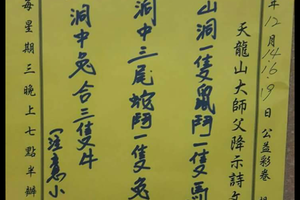 年12月14.16.19日公益彩卷
天龍山大師父降示詩文
山洞一隻鼠鬥一隻馬
洞中三尾蛇鬥一隻兔
洞中兔合三隻牛
(注意小
每星期三晚上七點半辦